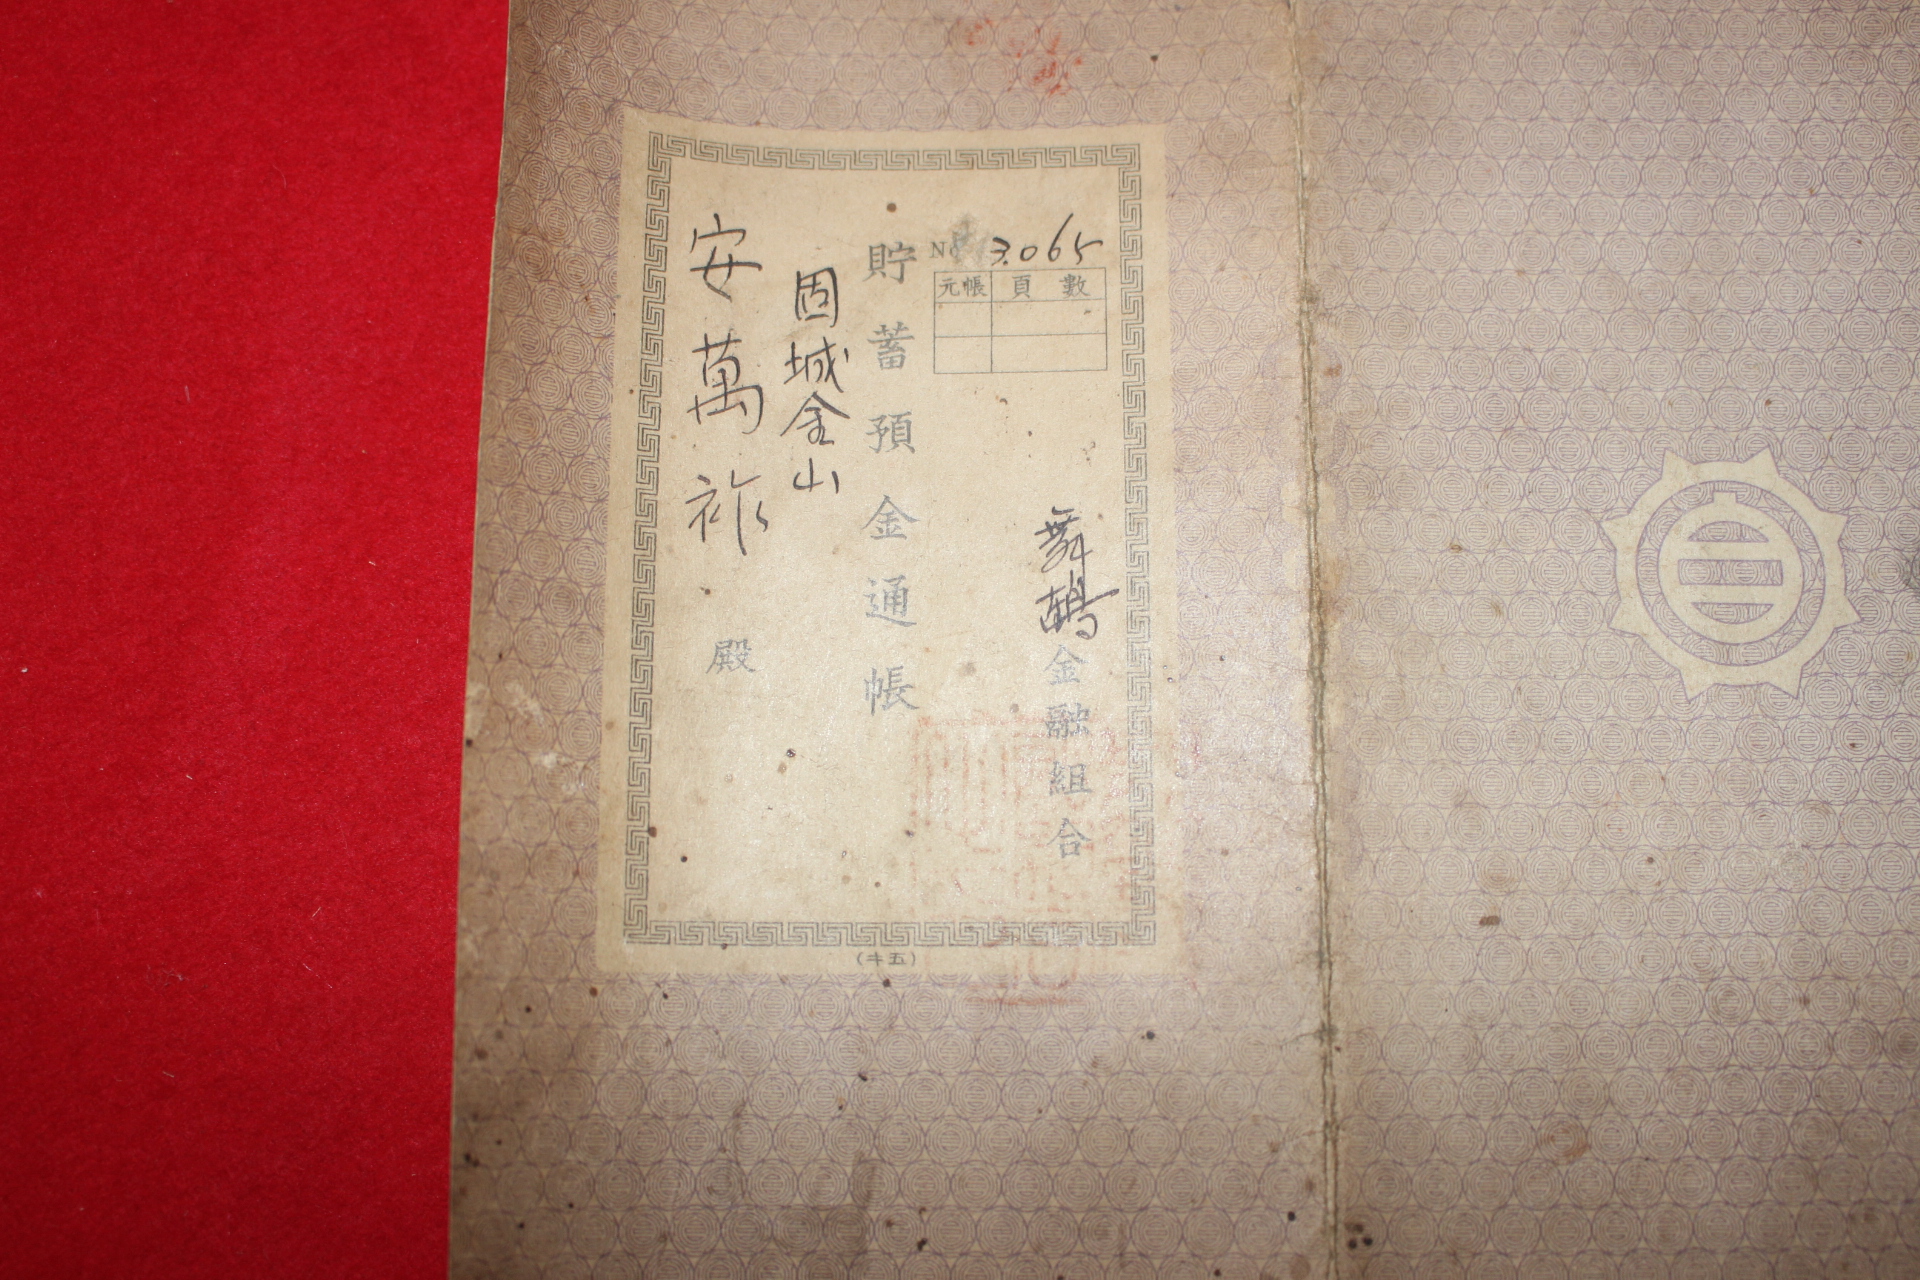 No 3.065
元帳 頁數
舞鶴金融組合
貯蓄預金通帳
固城金山
安萬祚殿
(キ五)